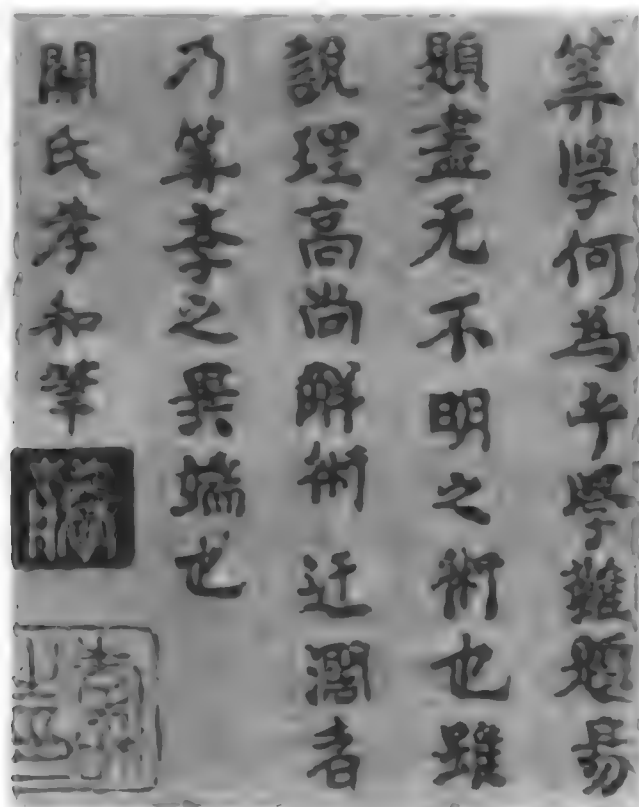 算學何為乎學難題易
題盡无不明之術也雖
說理高尚解術迂濶者
乃算學之異端也
關氏孝和筆